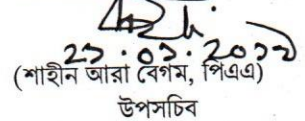 ২১.০১.২০১৯
(শাহীন আরা বেগম, পিএএ)
উপসচিব